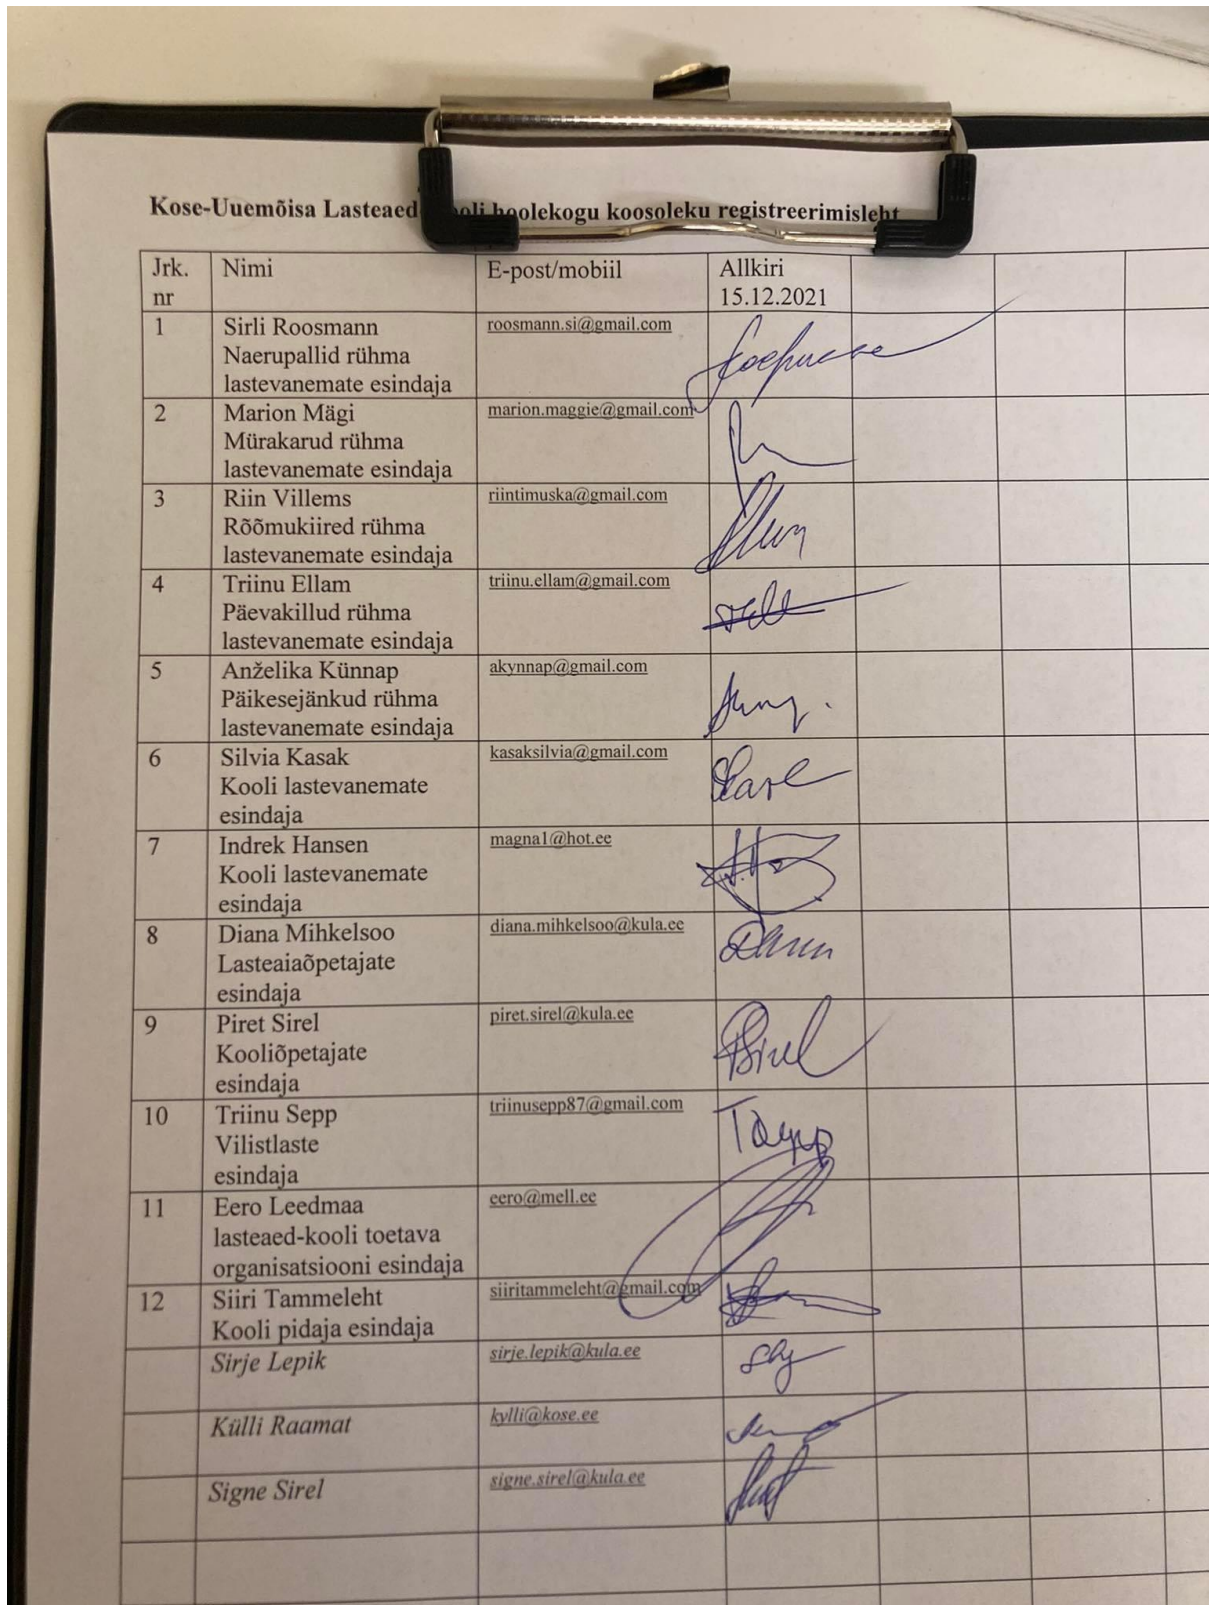 Kose-Uuemõisa Lasteaed ooli hoolekogu koosoleku registreerimisleht
Jrk. nr
Nimi
E-post/mobiil
Allkiri
15.12.2021
1
Sirli Roosmann
Naerupallid rühma
lastevanemate esindaja
roosmann.si@gmail.com
2
Marion Mägi
Mürakarud rühma
lastevanemate esindaja
marion.maggie@gmail.com
3
Riin Villems
Rõõmukiired rühma
lastevanemate esindaja
riintimuska@gmail.com
4
Triinu Ellam
Päevakillud rühma
lastevanemate esindaja
triinu.ellam@gmail.com
5
Anželika Künnap
Päikesejänkud rühma
lastevanemate esindaja
akynnap@gmail.com
6
Silvia Kasak
Kooli lastevanemate
esindaja
kasaksilvia@gmail.com
7
Indrek Hansen
Kooli lastevanemate
esindaja
magna1@hot.ee
8
Diana Mihkelsoo
Lasteaiaõpetajate
esindaja
diana.mihkelsoo@kula.ee
9
Piret Sirel
Kooliõpetajate
esindaja
piret.sirel@kula.ee
10
Triinu Sepp
Vilistlaste
esindaja
triinusepp87@gmail.com
11
Eero Leedmaa
lasteaed-kooli toetava
organisatsiooni esindaja
eero@mell.ee
12
Siiri Tammeleht
Kooli pidaja esindaja
siiritammeleht@gmail.com
Sirje Lepik
sirje.lepik@kula.ee
Külli Raamat
kylli@kose.ee
Signe Sirel
signe.sirel@kula.ee